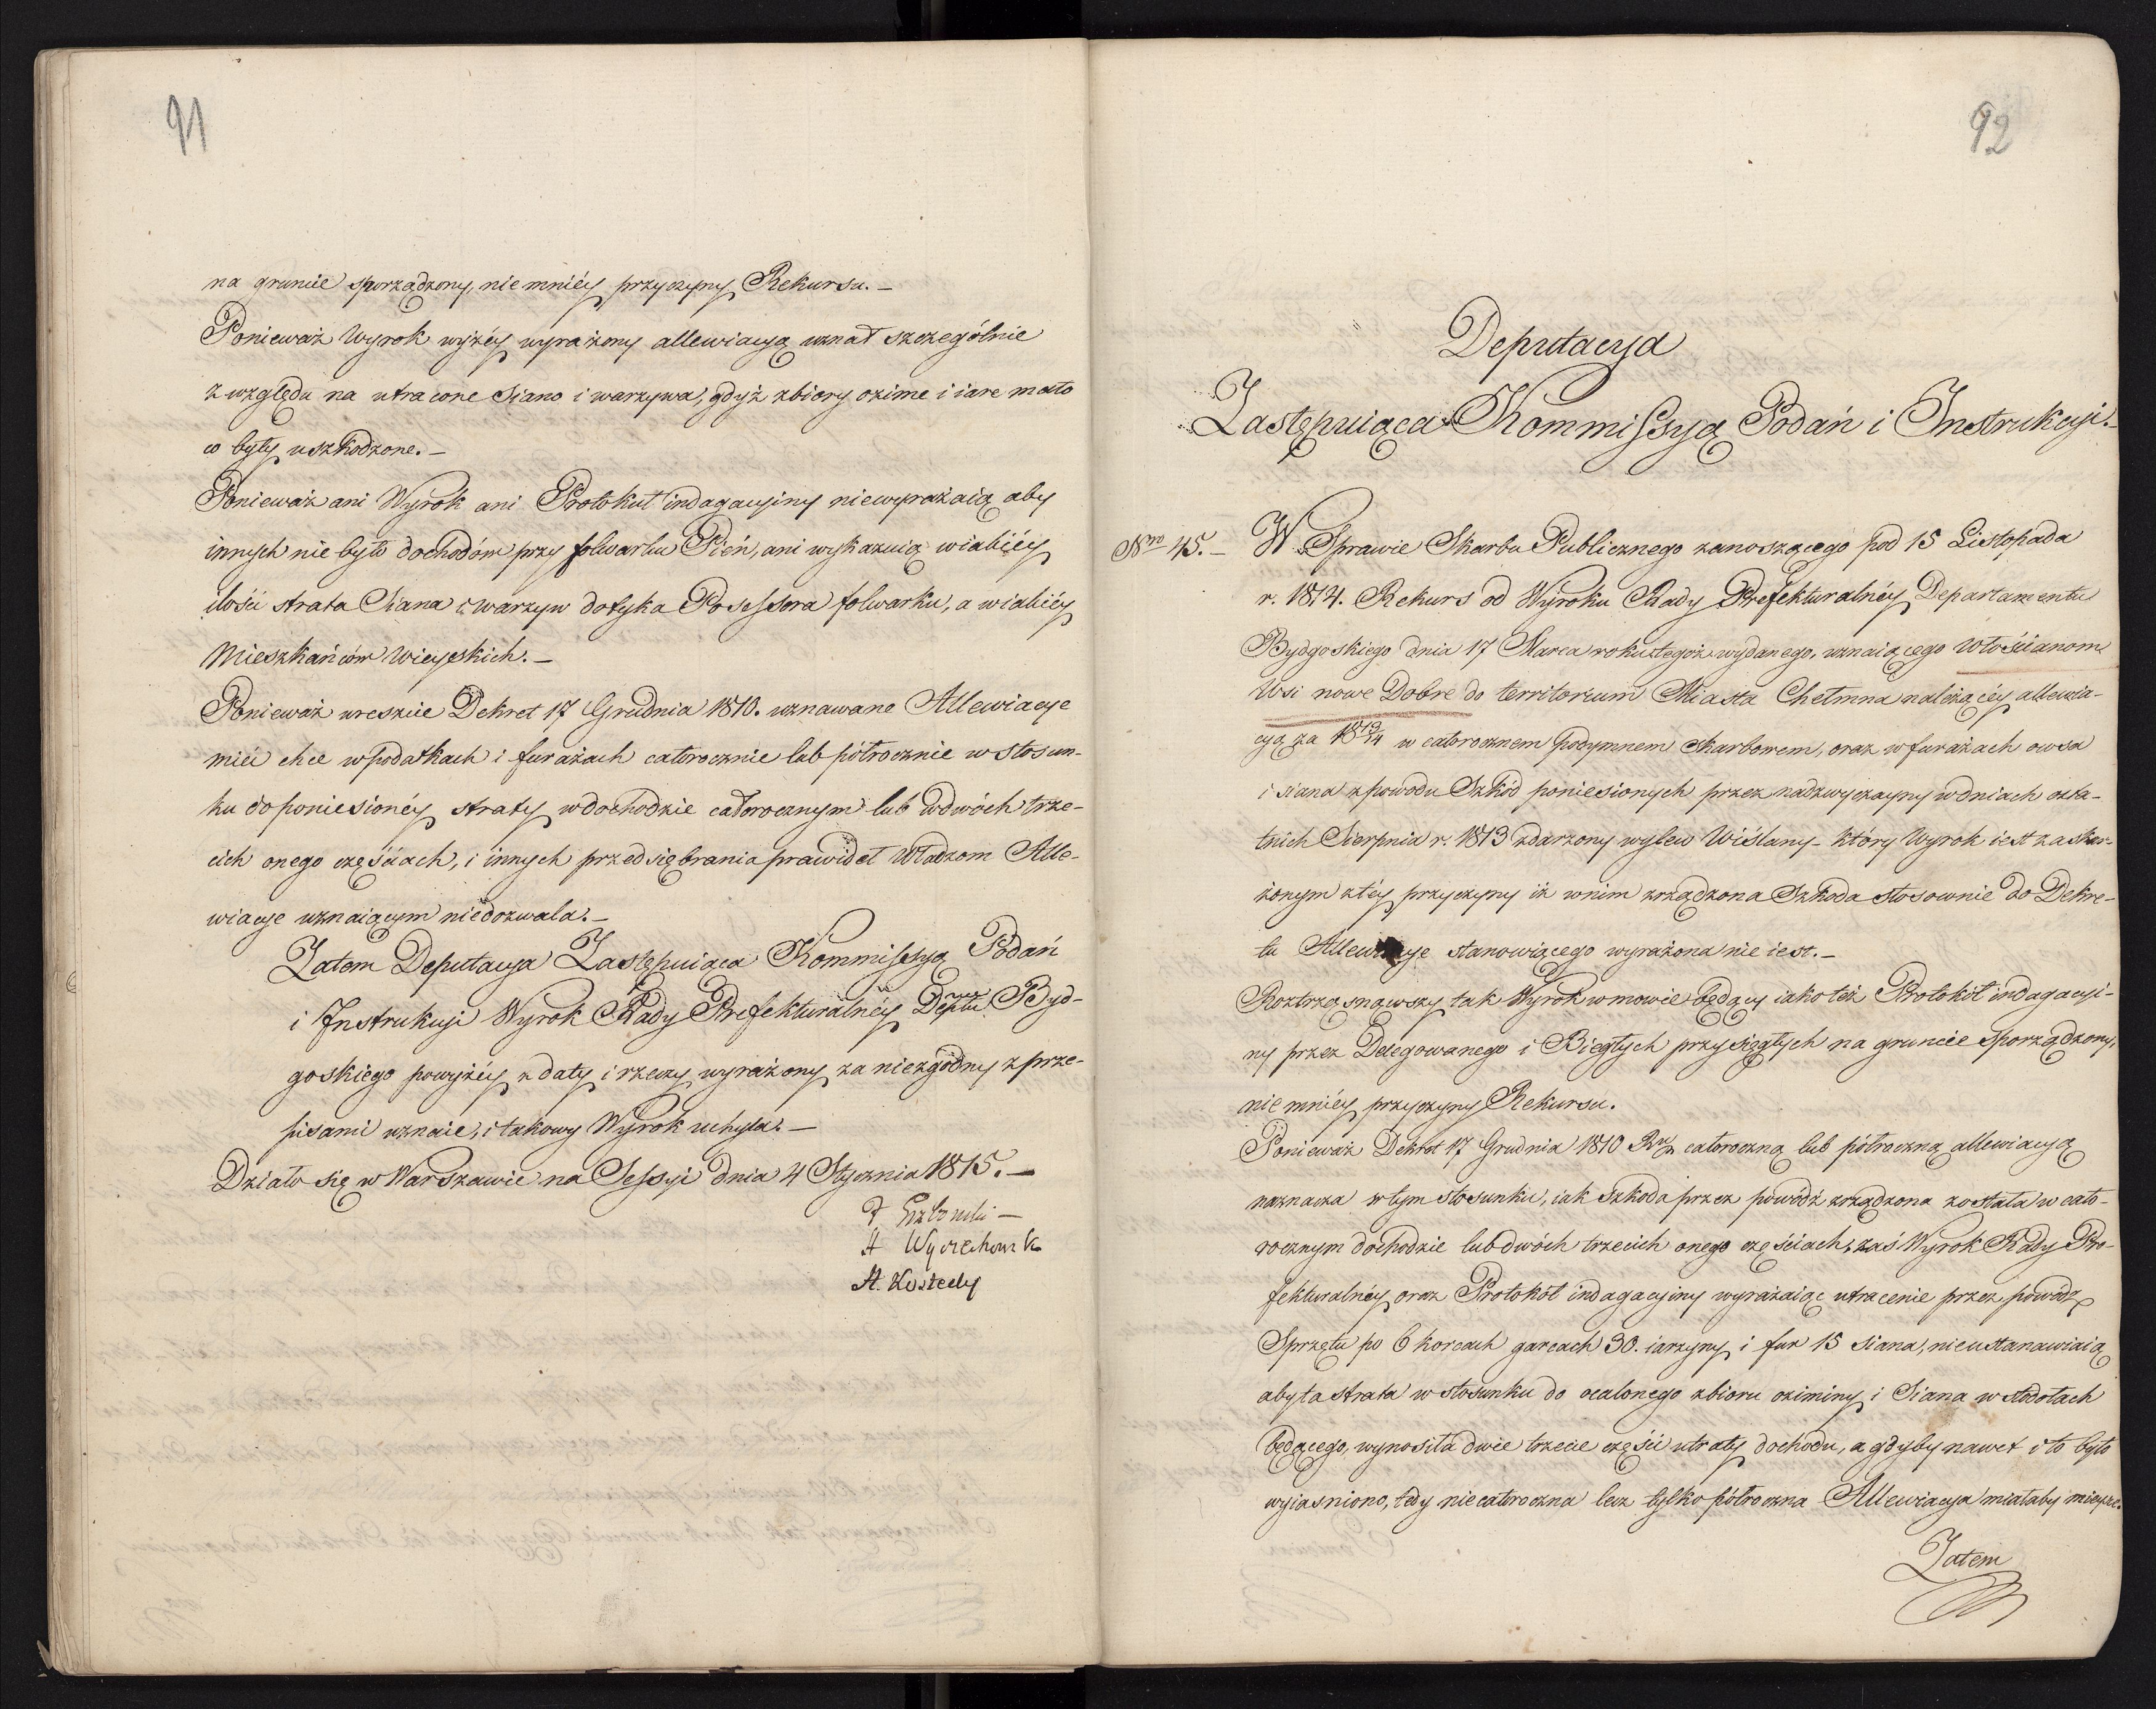 91
na gruncie sporządzony, niemniéy przyczyny Rekursu. –
Ponieważ Wyrok wyżéy wyrażony allewiacyą uznał szczególnie
z względu na utracone Siano i warzywa, gdyż zbiory ozime i iare mało
co były uszkodzone. –
Ponieważ ani Wyrok ani Protokuł indagacyiny niewyrażaią aby
innych nie było dochodów przy folwarku Pień, ani wykazuią wiakiéy
ilości strata Siana i warzyw dotyka Posessora folwarku, a wiakiéy
Mieszkańców Wieyskich. –
Ponieważ wreszcie Dekret 17 Grudnia 1810. uznawane Allewiacye
mieć chce w podatkach i furażach całorocznie lub półrocznie w stosun-
ku do poniesionéy straty w dochodzie całorocznym lub w dwóch trze-
cich onego częściach, i innych przedsiębrania prawideł Władzom Alle-
wiacye uznaiącym niedozwala. –
Zatem Deputacya Zastępuiąca Kommissyą Podań
i Instrukcyi Wyrok Rady Prefekturalnéy Deptu Byd-
goskiego powyżéy z daty i rzeczy wyrażony za niezgodny z prze-
pisami uznaie, i takowy Wyrok uchyla. –
Działo się w Warszawie na Sessyi dnia 4 Stycznia 1815. –
A Wyczechowsk
A. Kożuchy
92
Deputacya
Zastępuiąca Kommissyą Podań i Instrukcyi. –
Nro 45. – W Sprawie Skarbu Publicznego zanoszącego pod 15 Listopada
r. 1814. Rekurs od Wyroku Rady Prefekturalnéy Departamentu
Bydgoskiego dnia 17 Marca roku tegoż wydanego, uznaiącego Włościanom
Wsi nowe Dobre do territorium Miasta Chełmna należącéy allewia-
cyą za 1813/14 w całorocznem Podymnem Skarbowem, oraz w furażach owsa
i siana z powodu Szkód poniesionych przez nadzwyczayny w dniach osta-
tnich Sierpnia r. 1813 zdarzony wylew Wiślany – który Wyrok iest zaskar-
żonym z téy przyczyny iż w nim zrządzona Szkoda stosownie do Dekre-
tu Allewiacye stanowiącego wyrażona nie iest. –
Roztrząsnąwszy tak Wyrok w mowie będący iako też Protokół indagacyi-
ny przez Delegowanego i Biegłych przysięgłych na gruncie sporządzony,
niemniéy przyczyny Rekursu.
Ponieważ Dekret 17 Grudnia 1810 Ru całoroczną lub półroczną allewiacyą
naznacza w tym stosunku, iak szkoda przez powódź zrządzona została w cało-
rocznym dochodzie lub dwóch trzecich onego częściach, zaś Wyrok Rady Pre-
fekturalnéy oraz Protokół indagacyiny wyrażaiąc utracenie przez powódź
Sprzętu po 6 korcach garcach 30. iarzyny i fur 15 siana, nieustanawiaią
aby ta strata w stosunku do ocalonego zbioru oziminy i Siana w stodołach
będącego, wynosiła dwie trzecie części utraty dochodu, a gdyby nawet i to było
wyiasniono, tedy niecałoroczna lecz tylko półroczna Allewiacya miałaby mieysce.
Zatem